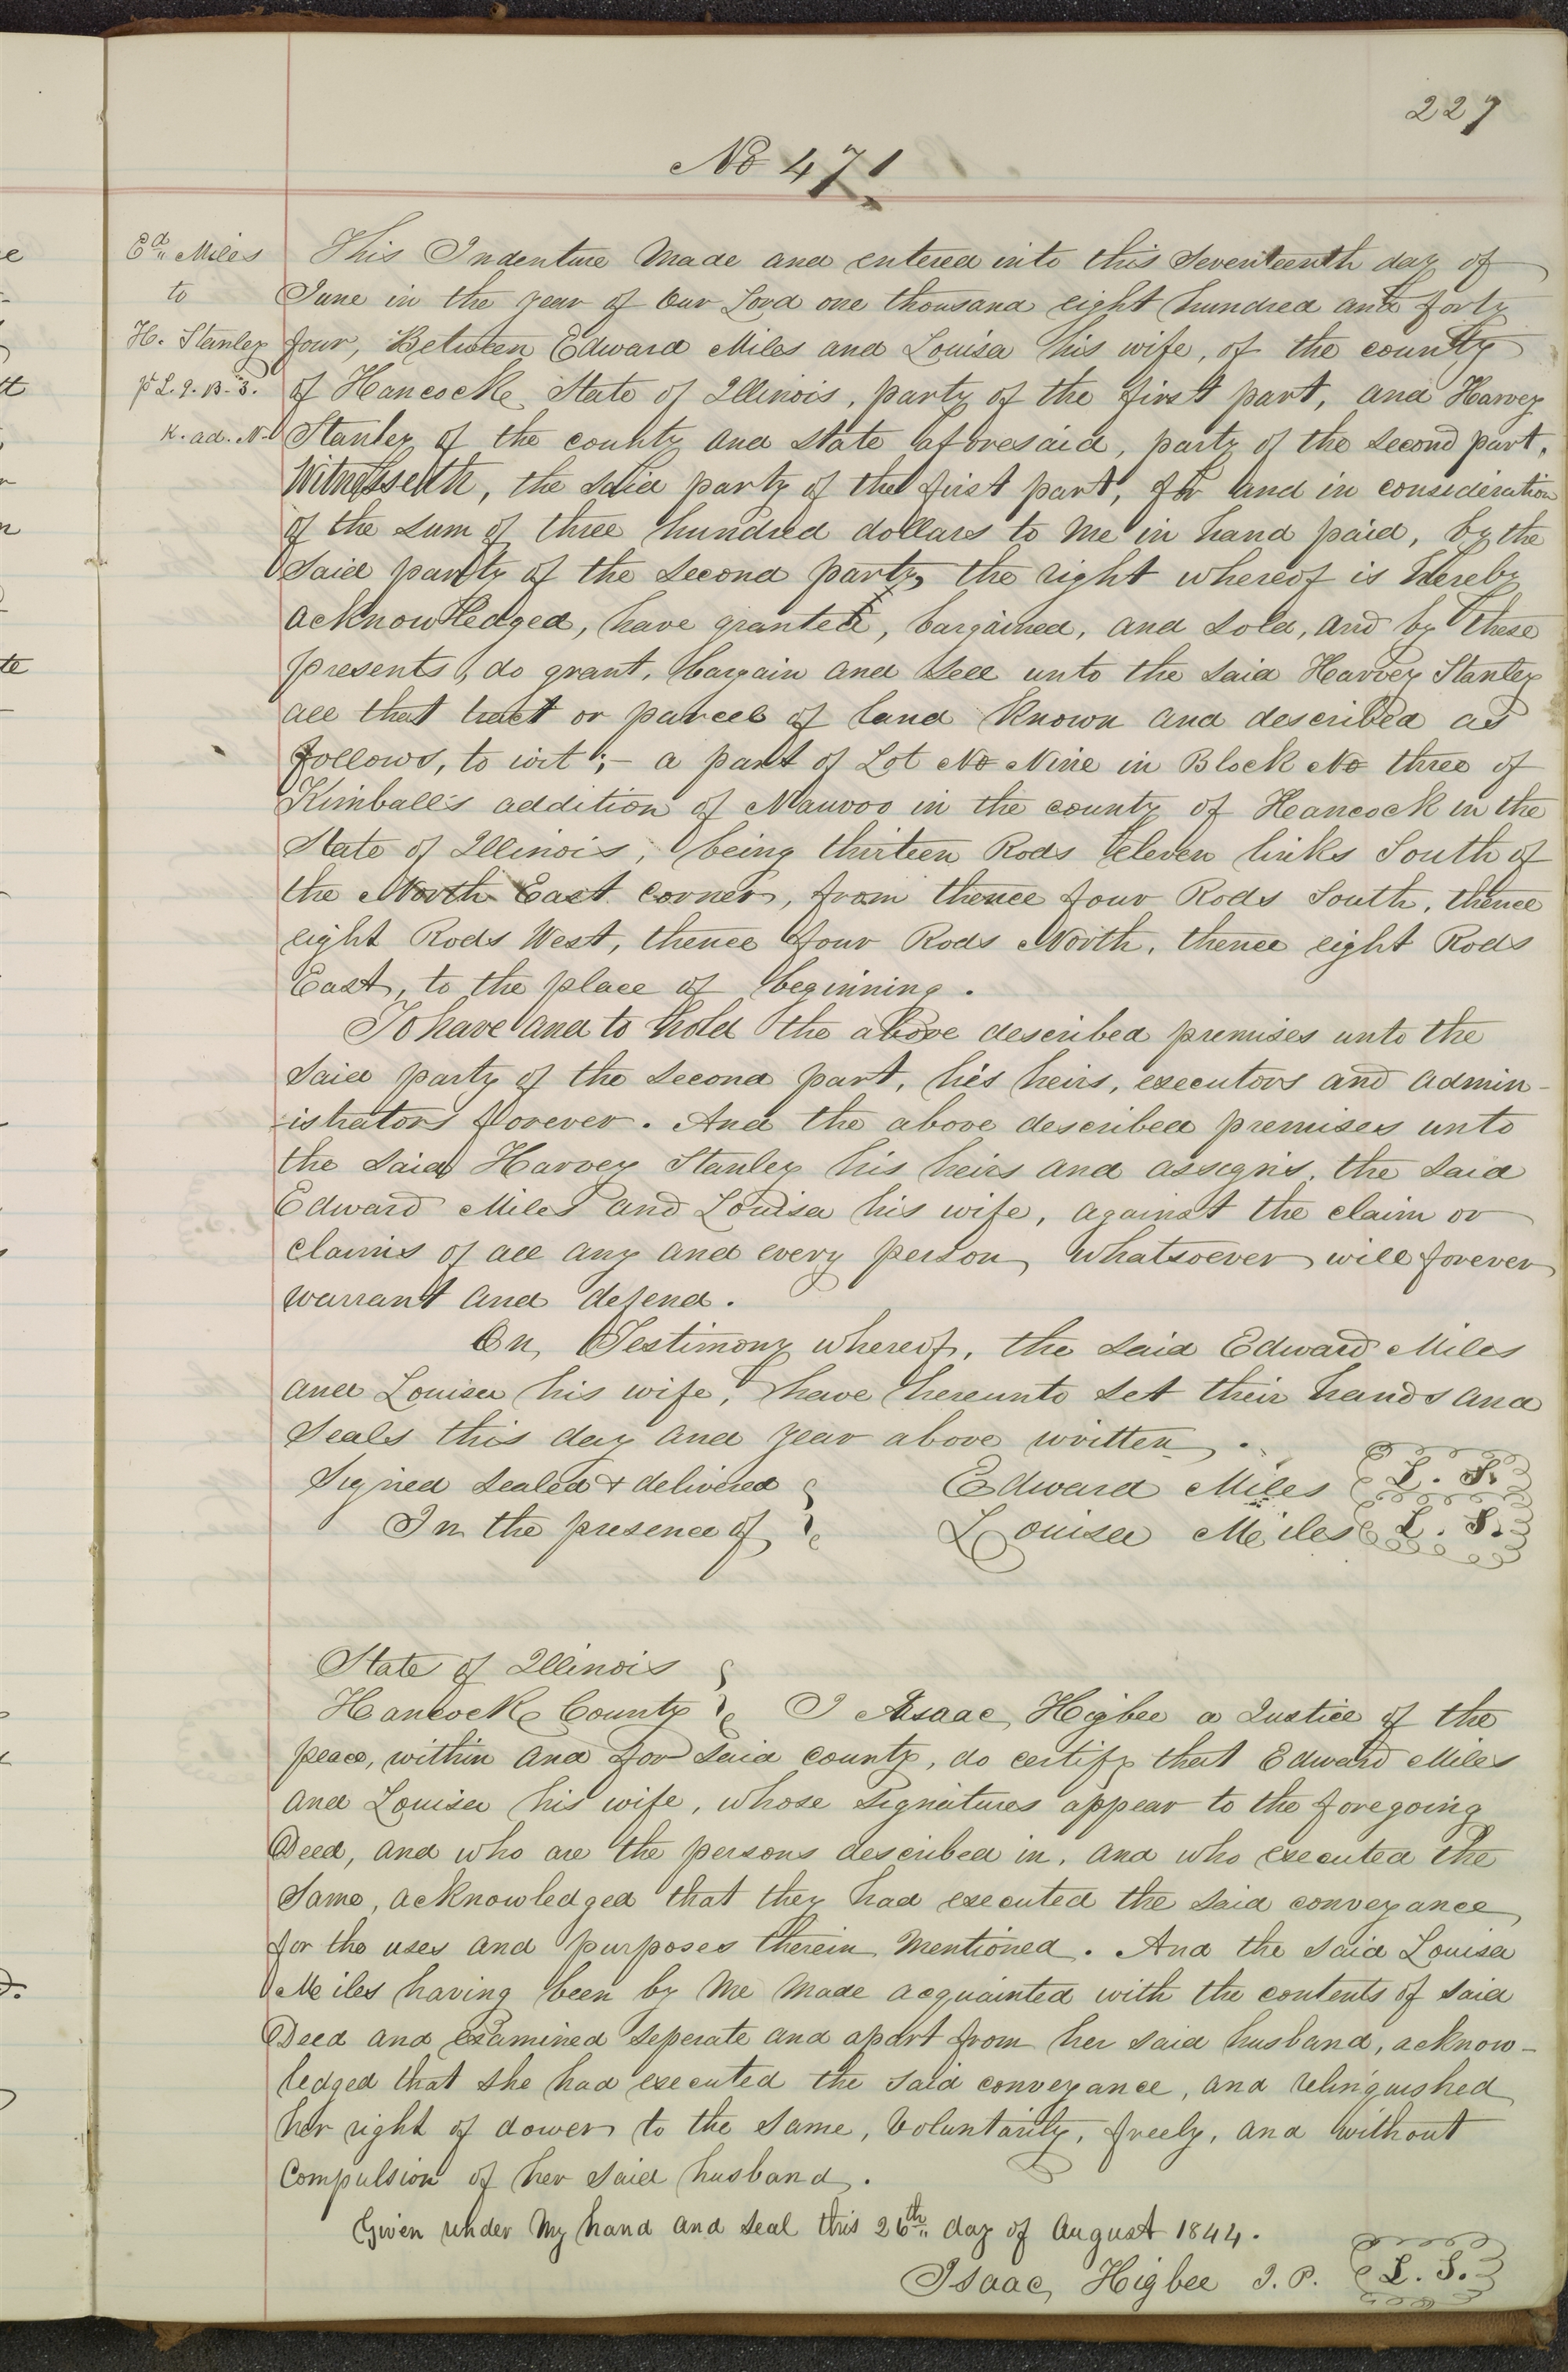 227
No 471
Ed. Miles
to
H. Stanley
pt L. 9. B. 3.
K. ad. N.
This Indenture Made and entered into this Seventeenth day of
June in the year of Our Lord one thousand eight hundred and forty
four, Between Edward Miles and Louisa his wife, of the county
of Hancock State of Illinois, party of the first part, and Harvey
Stanley of the county and state aforesaid, party of the second part.
Witnesseth, the said party of the first part, for and in consideration
of the sum of three hundred dollars to me in hand paid, by the
said party of the second party, the right whereof is hereby
acknowledged, have granted, bargained, and sold, and by these
presents, do grant, bargain and sell unto the said Harvey Stanley
all that tract or parcel of land known and described as
follows, to wit;- a part of Lot No Nine in Block No three of
Kimball's addition of Nauvoo in the county of Hancock in the
State of Illinois, being thirteen Rods eleven links South of
the North East corner, from thence four Rods South, thence
eight Rods West, thence four Rods North, thence eight Rods
East, to the place of beginning.
To have and to hold the above described premises unto the
said party of the second part, his heirs, executors and admin-
-istrators forever. And the above described premises unto
the said Harvey Stanley his heirs and assigns, the said
Edward Miles and Louisa his wife, against the claim or
claims of all any and every person whatsoever will forever
warrant and defend.
In Testimony whereof, the said Edward Miles
and Louisa his wife, have hereunto set their hands and
seals this day and year above written.
Signed sealed & delivered
In the presence of
Edward Miles L. S.
Louisa Miles L. S.
State of Illinois
Hancock County I Isaac Higbee a Justice of the
peace, within and for said county, do certify that Edward Miles
and Louisa his wife, whose signatures appear to the foregoing
Deed, and who are the persons described in, and who executed the
same, acknowledged that they had executed the said conveyance
for the uses and purposes therein mentioned. And the said Louisa
Miles having been by me made acquainted with the contents of said
Deed and examined seperate and apart from her said husband, acknow-
ledged that she had executed the said conveyance, and relinquished
her right of dower to the same, voluntarily, freely, and without
compulsion of her said husband.
Given under my hand and seal this 26th day of August 1844.
Isaac Higbee J. P. L. S.